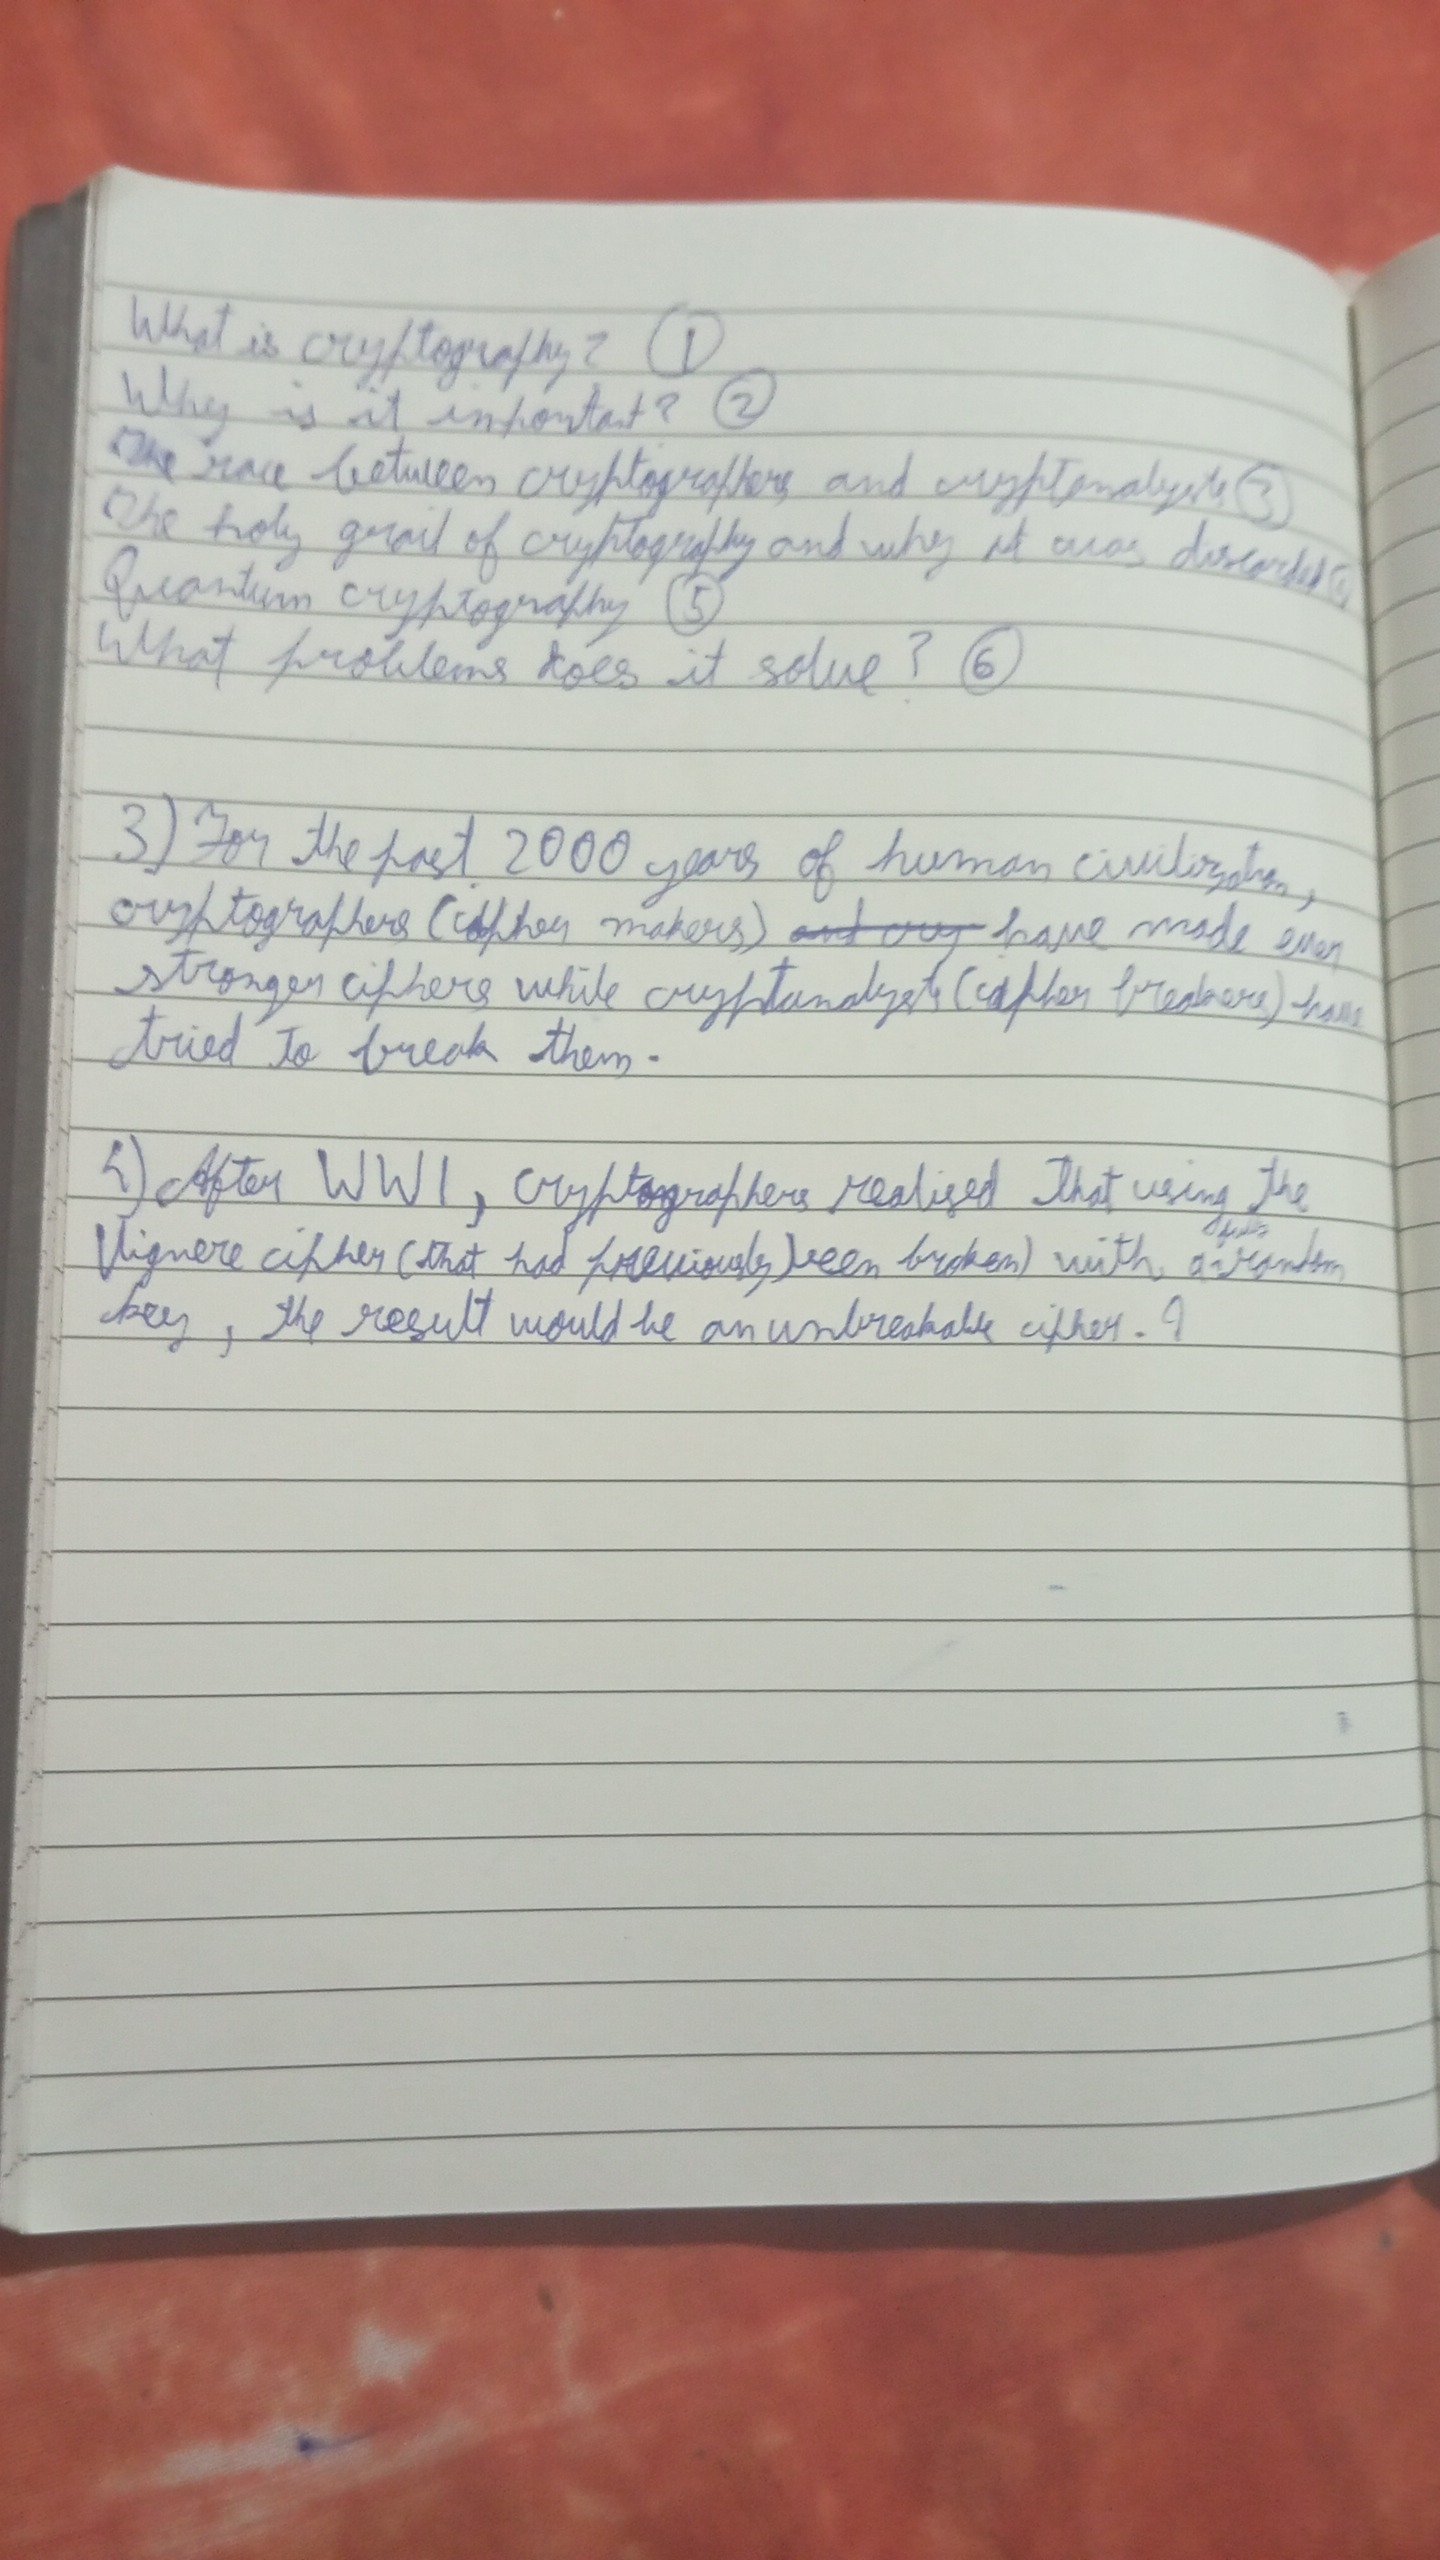 What is cryptography? ①
Why is it important? ②
The race between cryptographers and cryptanalysts ③
The holy grail of cryptography and why it was discarded
Quantum cryptography ⑤
What problems does it solve? ⑥
3) For the past 2000 years of human civilization,
cryptographers (cipher makers) have made ever
stronger ciphers while cryptanalysts (cipher breakers) have
tried to break them.
4) After WW1, cryptographers realised that using the
Vignere cipher (that had previously been broken) with a random
key, the result would be an unbreakable cipher.